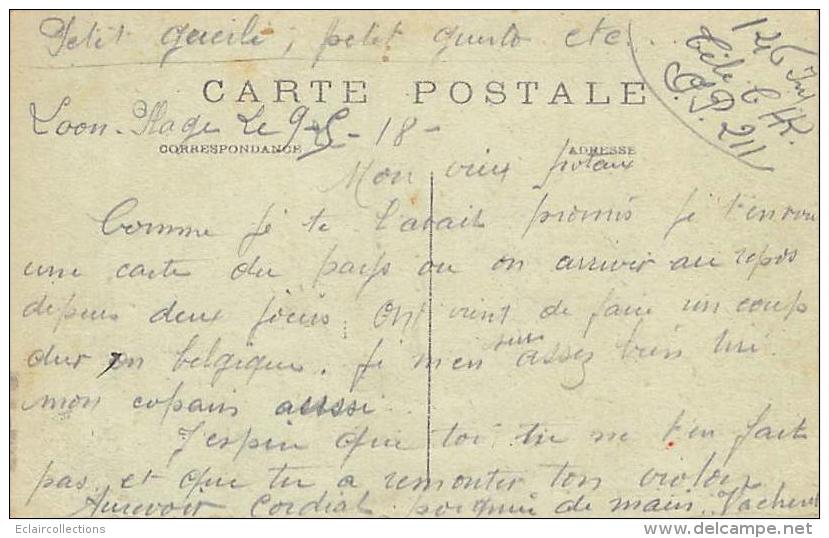 Petit gueili, petit gusto etc.
126 Inf
Cie C.H.R.
S.P. 211
CARTE POSTALE
Loon-Plage Le 9-5-18-
CORRESPONDANCE
ADRESSE
Mon vieux poteau
Comme je te l'avait promis je t'envoi
une carte du pays ou on arriver au repos
depuis deux jours. On vient de faire un coup
dur en belgique. Je m'en suis assez bien tiré
mon copain aussi
J'espere que toi tu ne t'en fait
pas, et que tu a remonter ton violon
Aurevoir Cordial poignée de main. Vacheret
Eclaircollections
delcampe.net